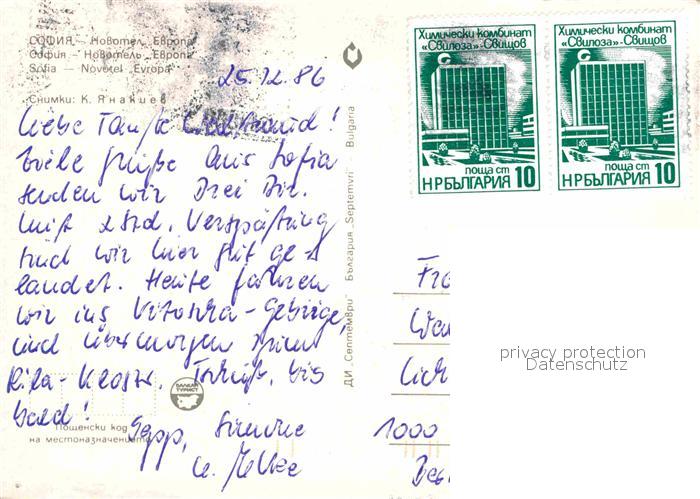 СОФИЯ — Новотел „Европа"
София — Новотель „Европа"
Sofia — Novotel „Evropa"
Снимки: К. Янакиев
25.12.86
Liebe Tante
Viele Grüße aus Sofia
senden wir Drei Dir.
Mit 2 Std. Verspätung
sind wir hier gut ge-
landet. Heute fahren
wir ins Vitoscha-Gebirge
und übermorgen zum
Rila-Kloster. Tschüß, bis
bald!
Sepp, Simone
u. Heike
Пощенски код
на местоназначението
БАЛКАН
ТУРИСТ
ДИ „Септември" България „Septemvri" Bulgaria
Химически комбинат
«Свилоза»-Свищов
поща ст
НРБЪЛГАРИЯ 10
Химически комбинат
«Свилоза»-Свищов
поща ст
НРБЪЛГАРИЯ 10
1000
privacy protection
Datenschutz